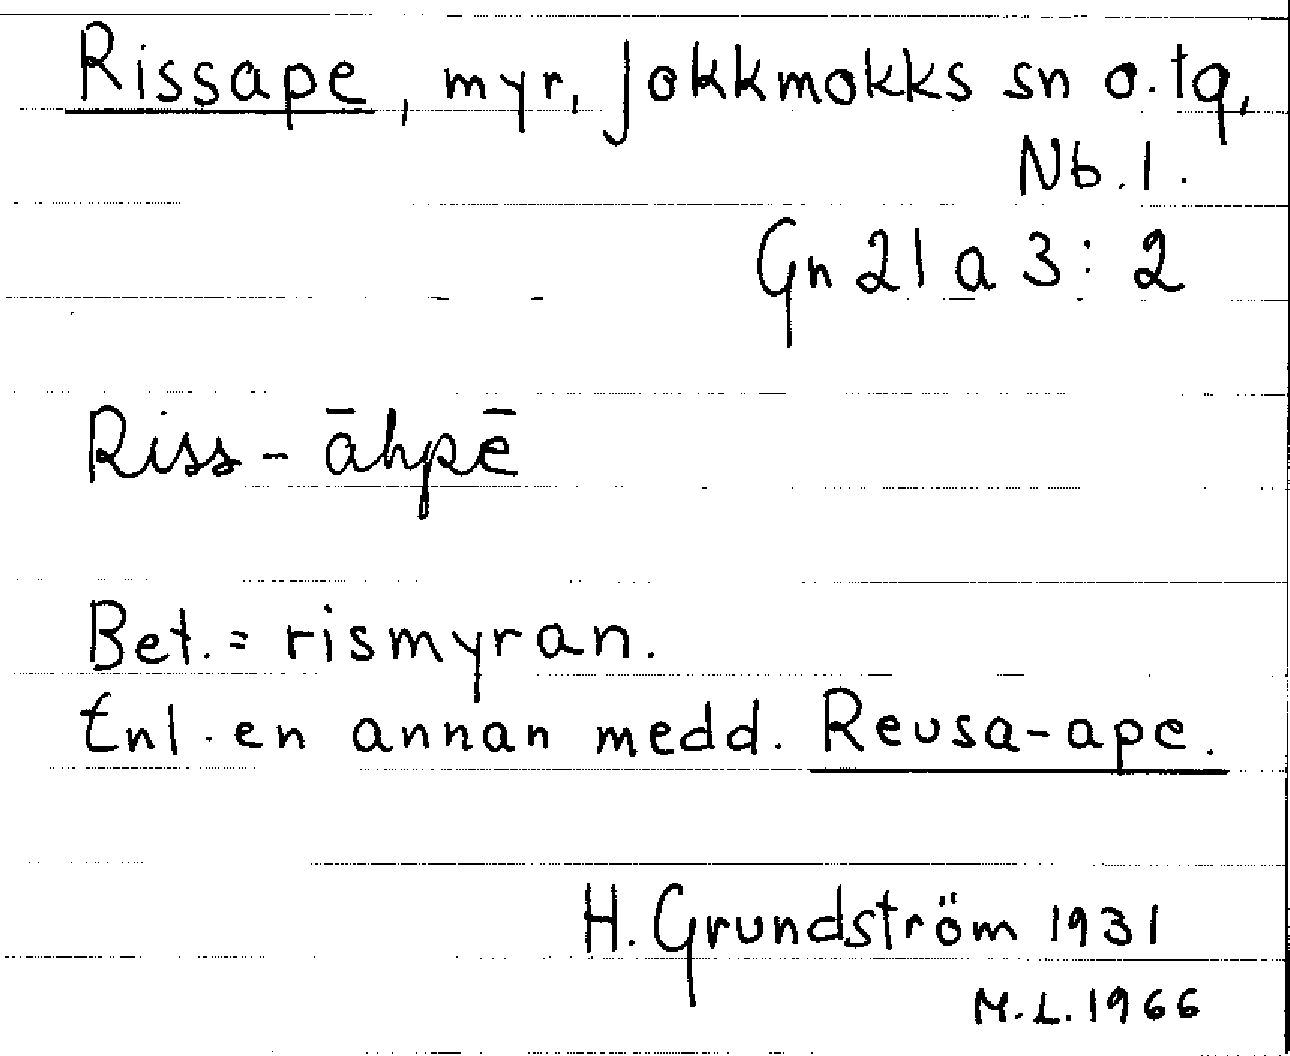 Rissape, myr, Jokkmokks sn o. tg,
Nb. l.
Gn 21 a 3 : 2
Riss - āhpē
Bet. = rismyran.
Enl. en annan medd. Reusa-ape.
H. Grundström 1931
M.L. 1966